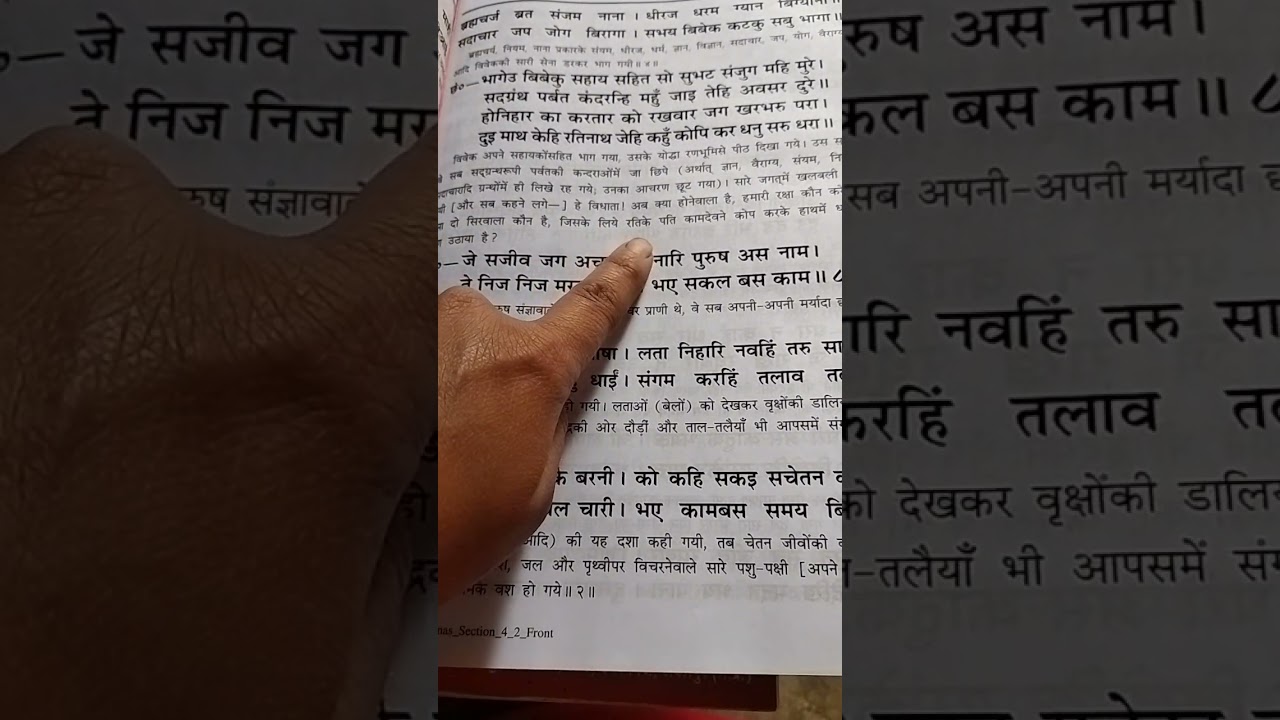 ब्रह्मचर्ज ब्रत संजम नाना । धीरज धरम ग्यान बिग्याना॥
सदाचार जप जोग बिरागा । सभय बिबेक कटकु सबु भागा॥
ब्रह्मचर्य, नियम, नाना प्रकारके संयम, धीरज, धर्म, ज्ञान, विज्ञान, सदाचार, जप, योग, वैराग्य
आदि विवेककी सारी सेना डरकर भाग गयी॥४॥
छं०—भागेउ बिबेकु सहाय सहित सो सुभट संजुग महि मुरे।
सदग्रंथ पर्बत कंदरन्हि महुँ जाइ तेहि अवसर दुरे॥
होनिहार का करतार को रखवार जग खरभरु परा।
दुइ माथ केहि रतिनाथ जेहि कहुँ कोपि कर धनु सरु धरा॥
विवेक अपने सहायकोंसहित भाग गया, उसके योद्धा रणभूमिसे पीठ दिखा गये। उस
सब सद्ग्रन्थरूपी पर्वतकी कन्दराओंमें जा छिपे (अर्थात् ज्ञान, वैराग्य, संयम,
ग्रन्थोंमें ही लिखे रह गये; उनका आचरण छूट गया)। सारे जगत्‌में खलबली
[और सब कहने लगे—] हे विधाता! अब क्या होनेवाला है, हमारी रक्षा कौन
दो सिरवाला कौन है, जिसके लिये रतिके पति कामदेवने कोप करके हाथमें
उठाया है?
—जे सजीव जग नारि पुरुष अस नाम।
ते निज निज भए सकल बस काम॥
प्राणी थे, वे सब अपनी-अपनी मर्यादा
। लता निहारि नवहिं तरु
धाईं। संगम करहिं तलाव
गयी। लताओं (बेलों) को देखकर वृक्षोंकी
ओर दौड़ीं और ताल-तलैयाँ भी आपसमें
बरनी। को कहि सकइ सचेतन
चारी। भए कामबस समय
आदि) की यह दशा कही गयी, तब चेतन जीवोंकी
जल और पृथ्वीपर विचरनेवाले सारे पशु-पक्षी [अपने
वश हो गये॥२॥
Section_4_2_Front